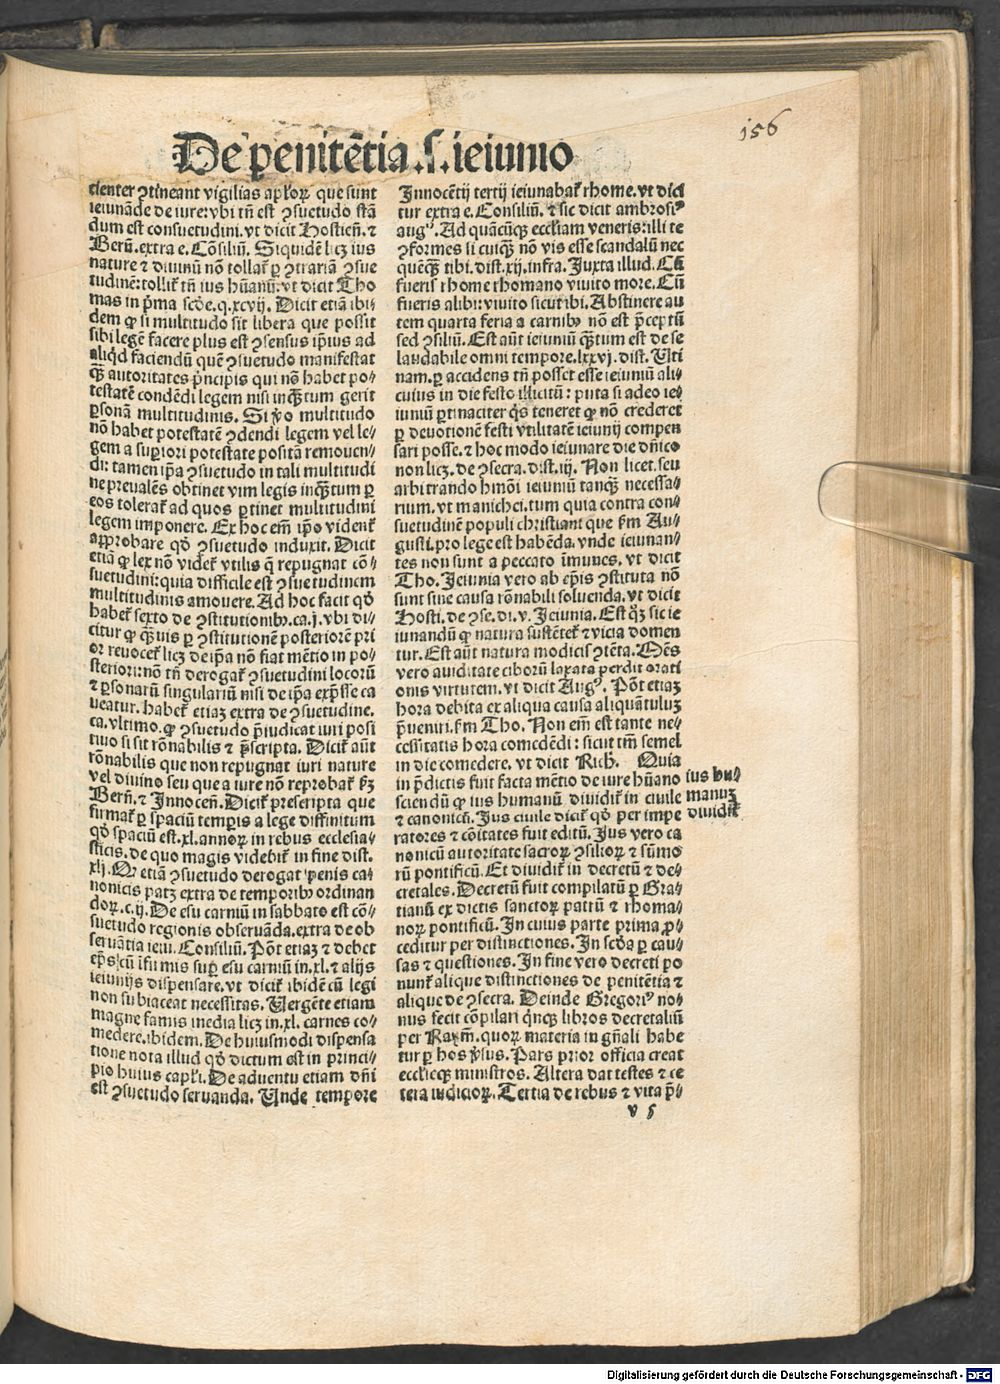 156
De penitētia .S. ieiunio
cienter ꝯtineant vigilias apl'oꝝ que sunt
ieiunāde de iure: vbi tñ est ꝯsuetudo stā
dum est consuetudini. vt dicit Hostieñ. ⁊
Berñ. extra e. Cōsiliū. Siquidē licꝫ ius
nature ⁊ diuinū nō tollat᷑ ꝑ ꝯtrariā ꝯsue
tudinē: tollit᷑ tñ ius hūanū: vt dicit Tho
mas in p̄ma scd̄e. q. xcvij. Dicit etiā ibi⸗
dem ꝙ si multitudo sit libera que possit
sibi legē facere plus est ꝯsensus ip̄ius ad
aliqd̄ faciendū quē ꝯsuetudo manifestat
qꝫ̄ autoritates p̄ncipis qui nō habet po⸗
testatē condēdi legem nisi inqꝫ̄tum gerit
ꝑsonā multitudinis. Si ṽo multitudo
nō habet potestatē ꝯdendi legem vel le⸗
gem a supiori potestate positā remouen⸗
di: tamen ip̄a ꝯsuetudo in tali multitudi
ne preualēs obtinet vim legis inqꝫ̄tum ꝑ
eos tolerat᷑ ad quos ꝑtinet multitudini
legem imponere. Ex hoc em̄ ip̄o vident᷑
approbare qd̓ ꝯsuetudo induxit. Dicit
etiā ꝙ lex nō videt᷑ vtilis q̄ repugnat cō⸗
suetudini: quia difficile est ꝯsuetudinem
multitudinis amouere. Ad hoc facit qd̓
habet᷑ sexto de ꝯstitutionibꝰ. ca. j. vbi di⸗
citur ꝙ qꝫ̄uis ꝑ ꝯstitutionē posteriorē pri
or reuocet᷑ licꝫ de ip̄a nō fiat mētio in po⸗
steriori: nō tñ derogat᷑ ꝯsuetudini locorū
⁊ ꝑsonarū singulariū nisi de ip̄a exp̄sse ca
ueatur. habet᷑ etiaꝫ extra de ꝯsuetudine.
ca. vltimo. ꝙ ꝯsuetudo p̄iudicat iuri posi
tiuo si sit rōnabilis ⁊ p̄scripta. Dicit᷑ aūt
rōnabilis que non repugnat iuri nature
vel diuino seu que a iure nō reprobat᷑ ẜꝫ
Berñ. ⁊ Innoceñ. Dicit᷑ prescripta que
firmat᷑ ꝑ spaciū temp̄is a lege diffinitum
qd̓ spaciū est. xl. annoꝝ in rebus ecclesia⸗
sticis. de quo magis videbit᷑ in fine dist.
xlj. Qꝫ etiā ꝯsuetudo derogat penis ca⸗
nonicis patꝫ extra de temporibꝰ ordinan
doꝝ. c. ij. De esu carniū in sabbato est cō⸗
suetudo regionis obseruāda. extra de ob
seruātia ieiu. Consiliū. Pōt etiaꝫ ⁊ debet
ep̄s cū īfirmis sup̄ esu carniū in. xl. ⁊ alijs
ieiunijs dispensare. vt dicit᷑ ibidē cū legi
non subiaceat necessitas. Vergēte etiam
magne famis inedia licꝫ in. xl. carnes co⸗
medere. ibidem. De huiusmodi dispensa
tione nota illud qd̓ dictum est in princi⸗
pio huius capl'i. De aduentu etiam dn̄i
est ꝯsuetudo seruanda. Unde tempore
Innocētij tertij ieiunabat᷑ rhome. vt dici
tur extra e. Consiliū. ⁊ sic dicit ambrosiꝰ
augꝰ. Ad quācūqꝫ eccliam veneris: illi te
ꝯformes si cuiqꝫ nō vis esse scandalū nec
quēqꝫ tibi. dist. xij. infra. Juxta illud. Cū
fueris rhome rhomano viuito more. Cū
fueris alibi: viuito sicut ibi. Abstinere au
tem quarta feria a carnibꝰ nō est p̄ceptū
sed ꝯsiliū. Est aūt ieiuniū qꝫ̄tum est de se
laudabile omni tempore. lxxvj. dist. Uti
nam. ꝑ accidens tñ posset esse ieiuniū ali⸗
cuius in die festo illicitū: puta si adeo ie⸗
iuniū ꝑtinaciter q̓s teneret ꝙ nō crederet
ꝑ deuotionē festi vtilitatē ieiunij compen
sari posse. ⁊ hoc modo ieiunare die dn̄ico
non licꝫ. de ꝯsecra. dist. iij. Non licet. seu
arbitrando hmōi ieiuniū tanqꝫ necessa⸗
rium. vt manichei. tum quia contra con⸗
suetudinē populi christiani que ẜm Au⸗
gusti. pro lege est habēda. vnde ieiunan⸗
tes non sunt a peccato īmunes. vt dicit
Tho. Ieiunia vero ab ep̄is ꝯstituta nō
sunt sine causa rōnabili soluenda. vt dicit
Hosti. de ꝯse. di. v. Ieiunia. Est q̓ꝫ sic ie
iunandū ꝙ natura sustētet᷑ ⁊ vicia domen
tur. Est aūt natura modicis ꝯtēta. Mēs
vero auiditate ciborū laxata perdit orati
onis virtutem. vt dicit Augꝰ. Pōt etiaꝫ
hora debita ex aliqua causa aliquātuluꝫ
p̄ueniri. ẜm Tho. Non em̄ est tante ne⸗
cessitatis hora comedēdi: sicut tm̄ semel
in die comedere. vt dicit Rich. Quia
in p̄dictis fuit facta mētio de iure hūano
sciendū ꝙ ius humanū diuidit᷑ in ciuile
⁊ canonicū. Jus ciuile dicit᷑ qd̓ per impe
ratores ⁊ cōitates fuit editū. Jus vero ca
nonicū autoritate sacroꝝ ꝯsilioꝝ ⁊ sūmo
rū pontificū. Et diuidit᷑ in decretū ⁊ de⸗
cretales. Decretū fuit compilatū ꝑ Gra⸗
tianū ex dictis sanctoꝝ patrū ⁊ rhoma⸗
noꝝ pontificū. In cuius parte prima ꝓ⸗
ceditur per distinctiones. In scd̓a ꝑ cau⸗
sas ⁊ questiones. In fine vero decreti po
nunt᷑ alique distinctiones de penitētia ⁊
alique de ꝯsecra. Deinde Gregoriꝰ no⸗
nus fecit cōpilari qn̄qꝫ libros decretaliū
per Raym̄. quoꝝ materia in gn̄ali habe
tur ꝑ hos ṽsus. Pars prior officia creat
eccl'icqꝫ ministros. Altera dat testes ⁊ ce
tera iudicioꝝ. Tertia de rebus ⁊ vita p̄⸗
ius hu⸗
manuꝫ
diuidit᷑
v 5
Digitalisierung gefördert durch die Deutsche Forschungsgemeinschaft - DFG